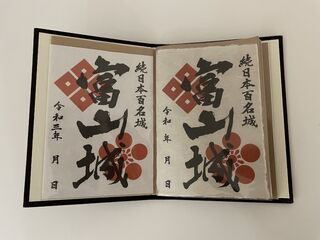 続日本百名城
富山城
令和三年 月 日
続日本百名城
富山城
令和 年 月 日